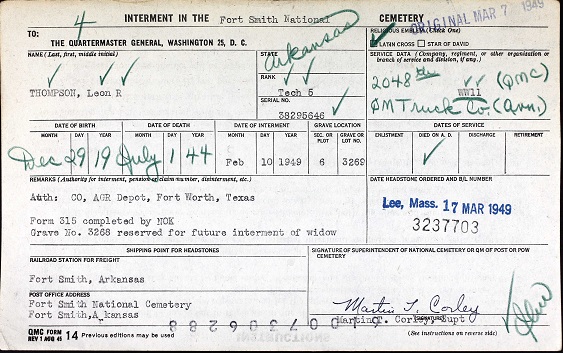 4
INTERMENT IN THE Fort Smith National CEMETERY
ORIGINAL MAR 7 1949
TO:
THE QUARTERMASTER GENERAL, WASHINGTON 25, D. C.
STATE
Arkansas
RELIGIOUS EMBLEM (Check One)
LATIN CROSS STAR OF DAVID
NAME (Last, first, middle initial)
THOMPSON, Leon R
RANK
Tech 5
SERIAL NO.
38295646
SERVICE DATA (Company, regiment, or other organization or branch of service and division, if any.)
2048th WW11 (QMC)
QM Truck Co. (Avn.)
DATE OF BIRTH DATE OF DEATH DATE OF INTERMENT GRAVE LOCATION DATES OF SERVICE
MONTH DAY YEAR MONTH DAY YEAR MONTH DAY YEAR SEC. OR PLOT GRAVE OR LOT NO. ENLISTMENT DIED ON A.D. DISCHARGE RETIREMENT
Dec 29 19 July 1 44 Feb 10 1949 6 3269
REMARKS (Authority for interment, pension or claim number, disinterment, etc.)
Auth: CO, AGR Depot, Fort Worth, Texas
Form 315 completed by NOK
Grave No. 3268 reserved for future interment of widow
DATE HEADSTONE ORDERED AND B/L NUMBER
Lee, Mass. 17 MAR 1949
3237703
SHIPPING POINT FOR HEADSTONES
RAILROAD STATION FOR FREIGHT
Fort Smith, Arkansas
POST OFFICE ADDRESS
Fort Smith National Cemetery
Fort Smith, Arkansas
SIGNATURE OF SUPERINTENDENT OF NATIONAL CEMETERY OR QM OF POST OR POW CEMETERY
Martin T. Corley
Martin T. Corley, Supt
(SIGNATURE)
QMC FORM
REV 1 AUG 46 14 Previous editions may be used
(See instructions on reverse side)